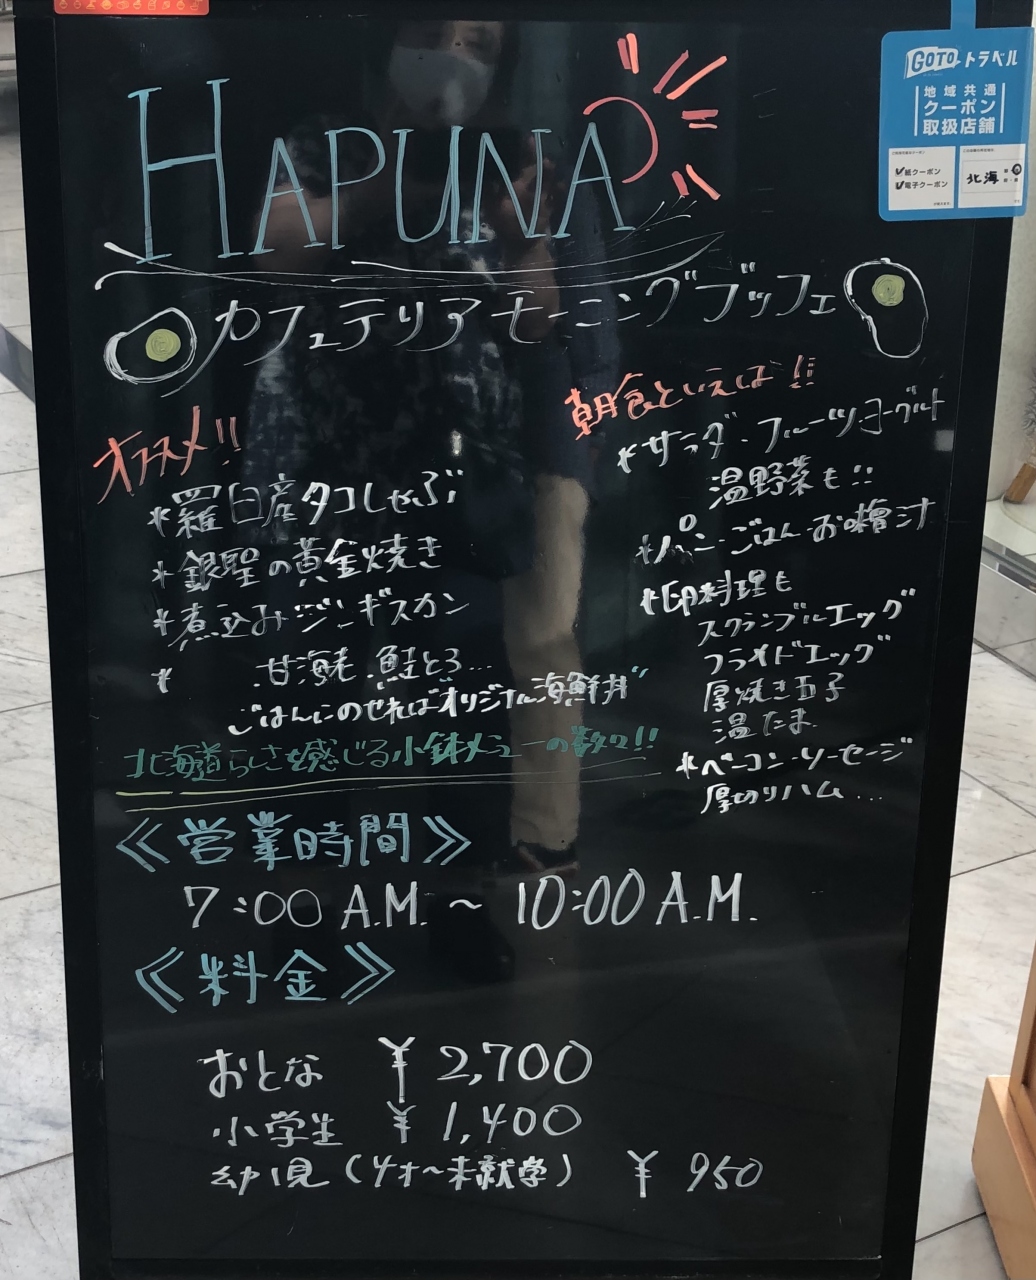 HAPUNA
カフェテリアモーニングブッフェ
オススメ!!
*羅臼産タコしゃぶ
*銀聖の黄金焼き
*煮込みジンギスカン
* 甘海老.鮭とろ...
ごはんにのせれば"オリジナル海鮮丼"
北海道らしさを感じる小鉢メニューの数々!!
朝食といえば!!
*サラダ・フルーツヨーグルト
温野菜も!!
*パン・ごはん・お味噌汁
*卵料理も
スクランブルエッグ
フライドエッグ
厚焼き玉子
温たま
*ベーコン・ソーセージ
厚切りハム...
《営業時間》
7:00 A.M. ~ 10:00 A.M.
《料金》
おとな ¥ 2,700
小学生 ¥ 1,400
幼児(4才~未就学) ¥ 950
GOTOトラベル
地域共通
クーポン
取扱店舗
紙クーポン
電子クーポン
北海